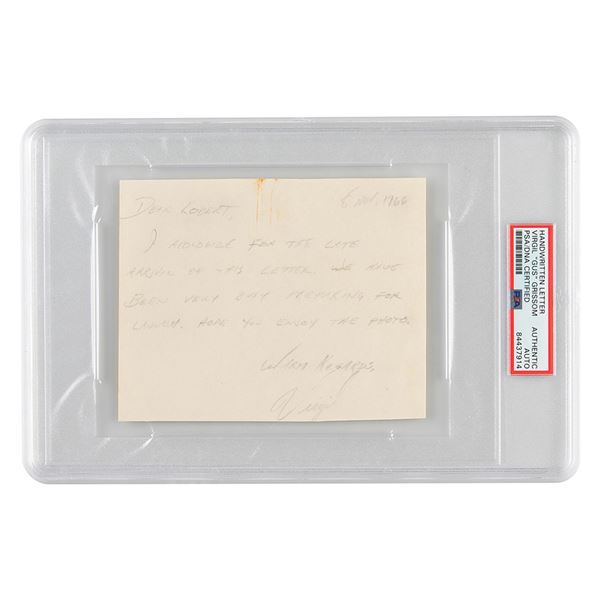 Dear Robert,
8 Nov. 1966
I apologize for the late
arrival of this letter. We have
been very busy preparing for
launch. Hope you enjoy the photo.
Warm Regards,
Virgil
HANDWRITTEN LETTER
VIRGIL "GUS" GRISSOM
PSA/DNA CERTIFIED
PSA
AUTHENTIC
AUTO
84437914